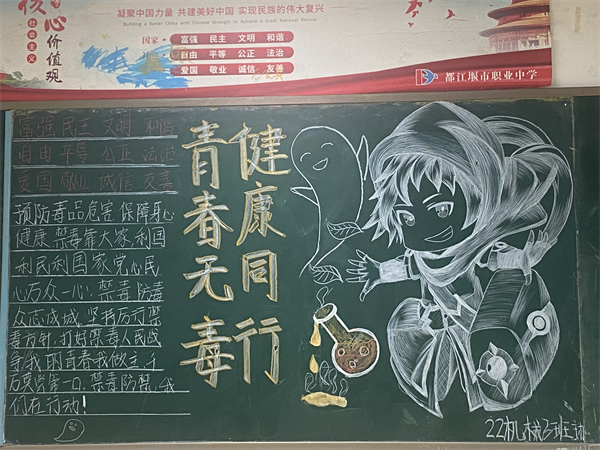 核心价值观
社会主义
凝聚中国力量 共建美好中国 实现民族的伟大复兴
Building a Better China with Chinese Strength to Achieve a Great National Revival
国家 富强 民主 文明 和谐
自由 平等 公正 法治
爱国 敬业 诚信 友善
都江堰市职业中学
富强 民主 文明 和谐
自由 平等 公正 法治
爱国 敬业 诚信 友善
预防毒品危害 保障身心
健康,禁毒靠大家,利国
利民利国家,党心民
心万众一心:禁毒防毒
众志成城,坚持厉行禁
毒方针,打好禁毒人民战
争,我的青春我做主,千
万莫尝第一口,禁毒防禁,我
们在行动!
健康同行
青春无毒
22机械3班